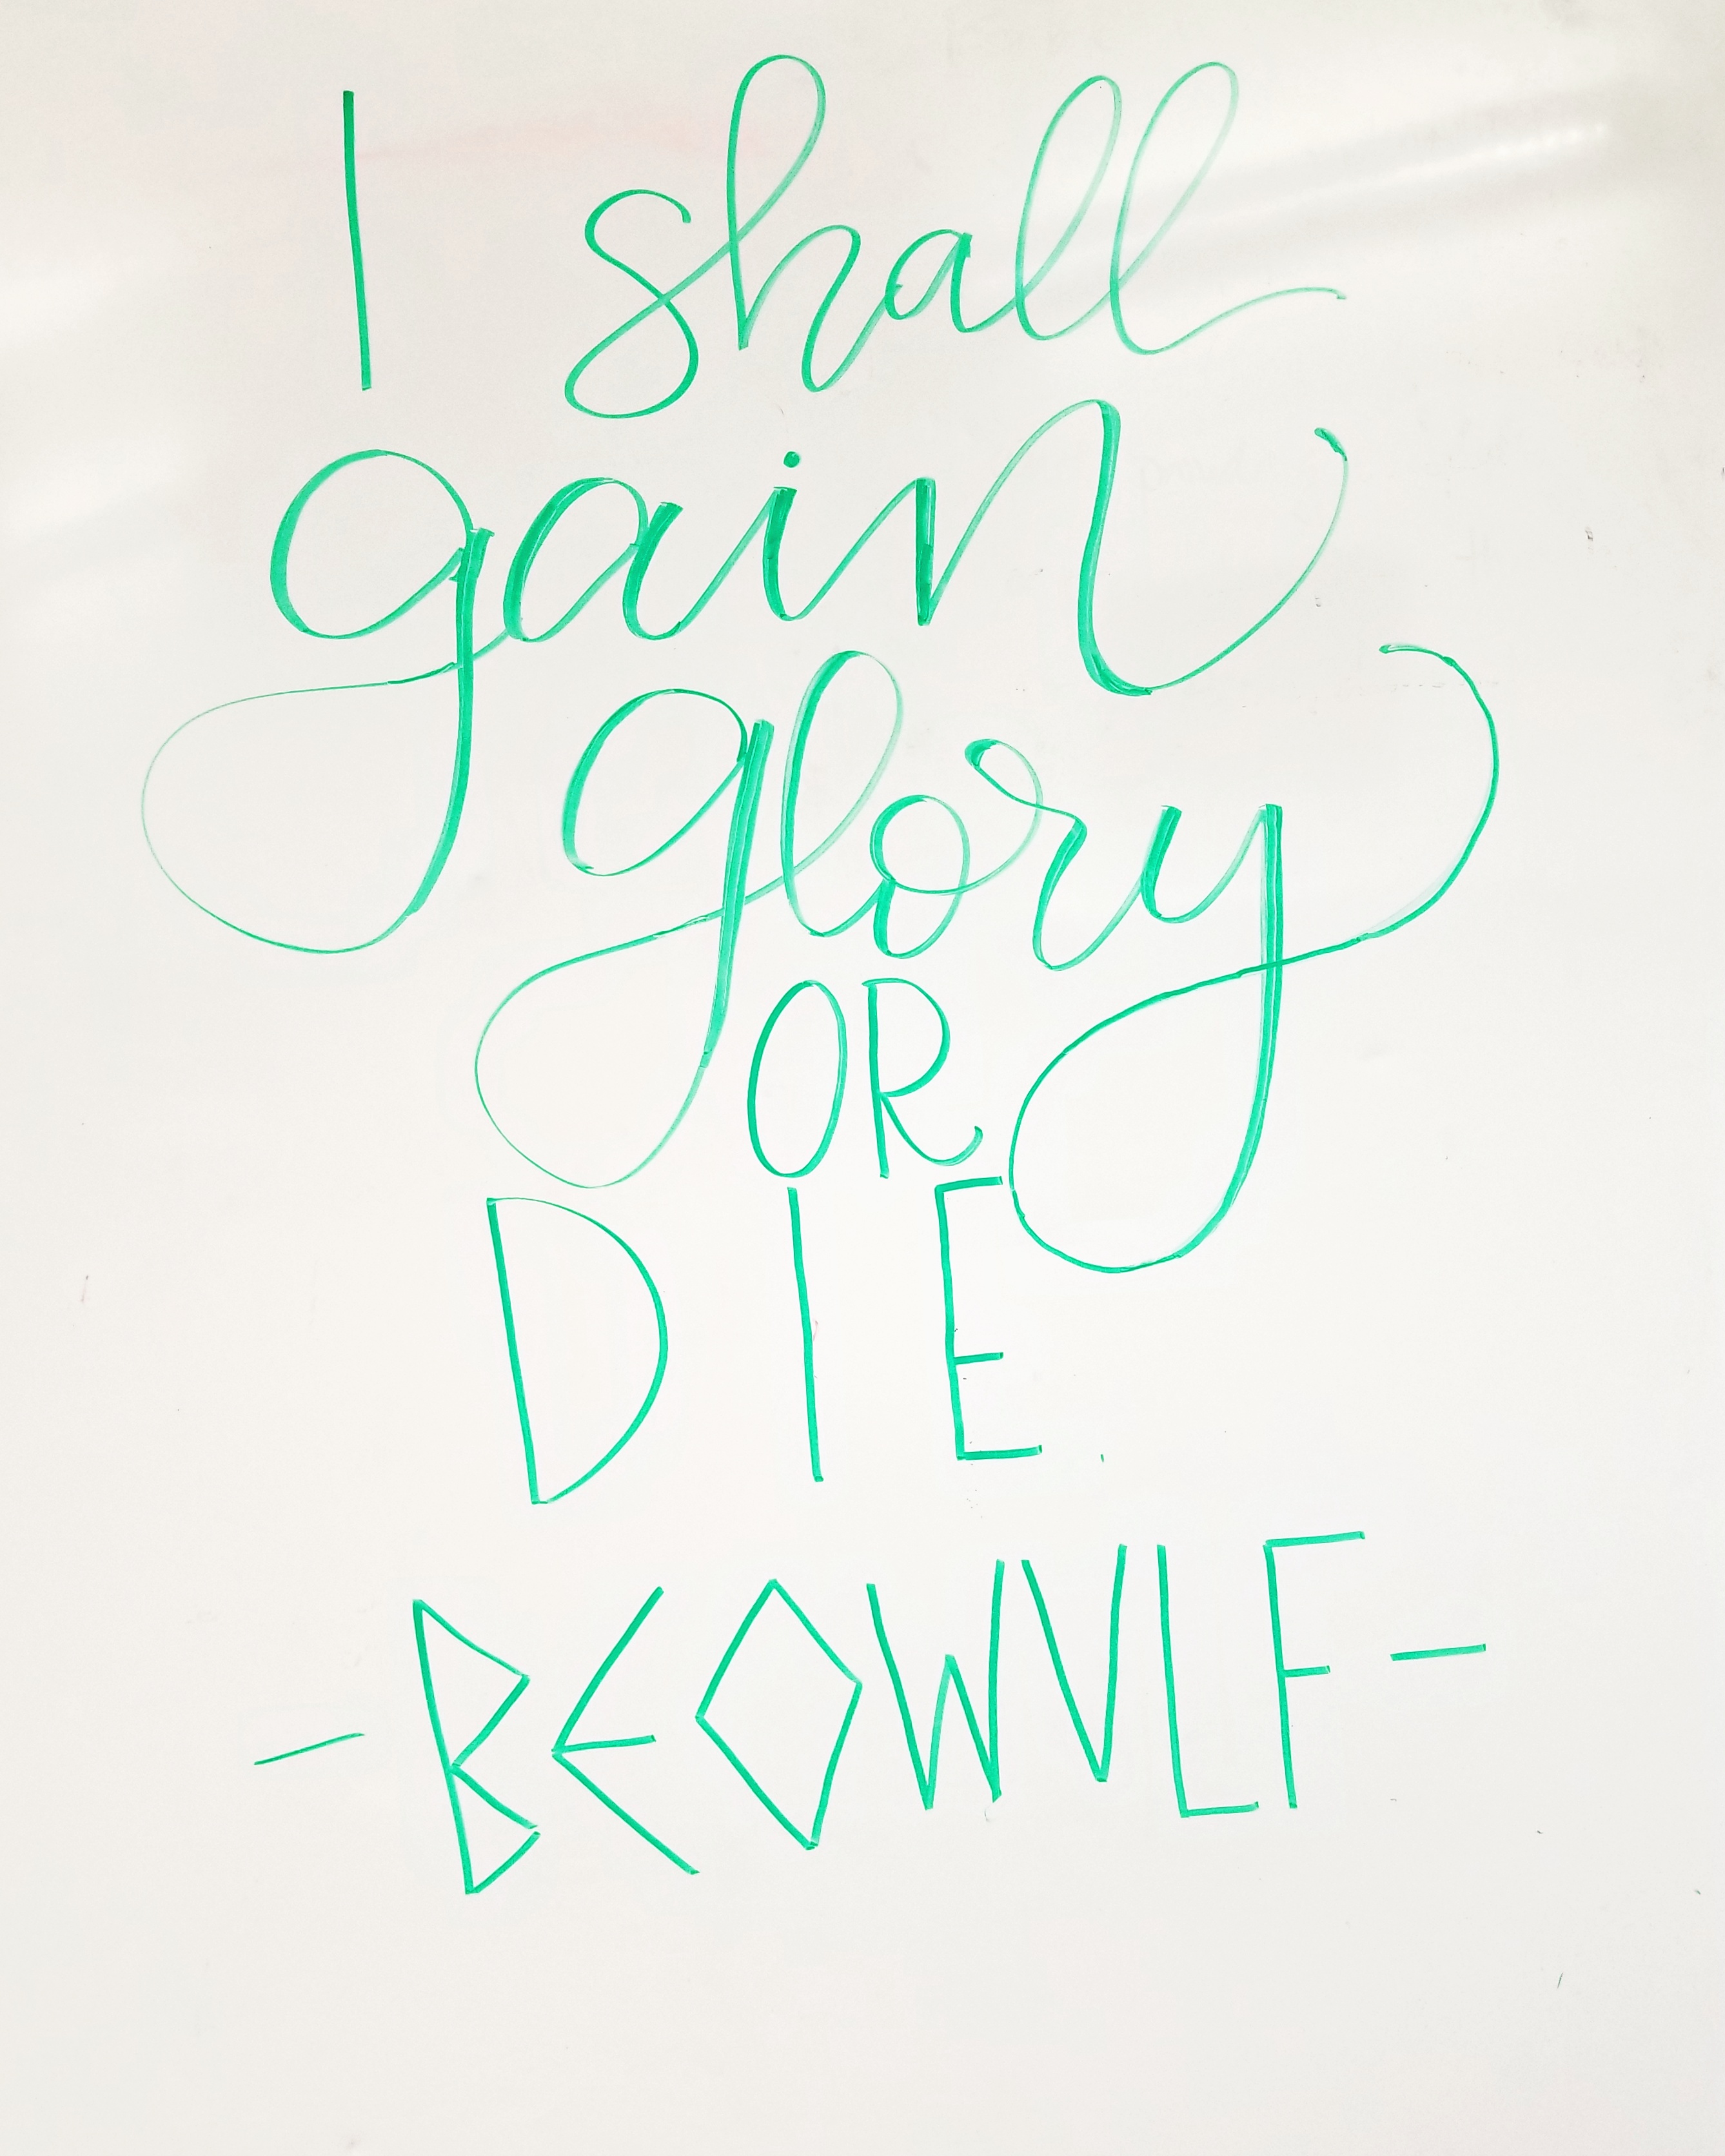 I shall
gain
glory
OR
DIE.
-BEOWVLF-